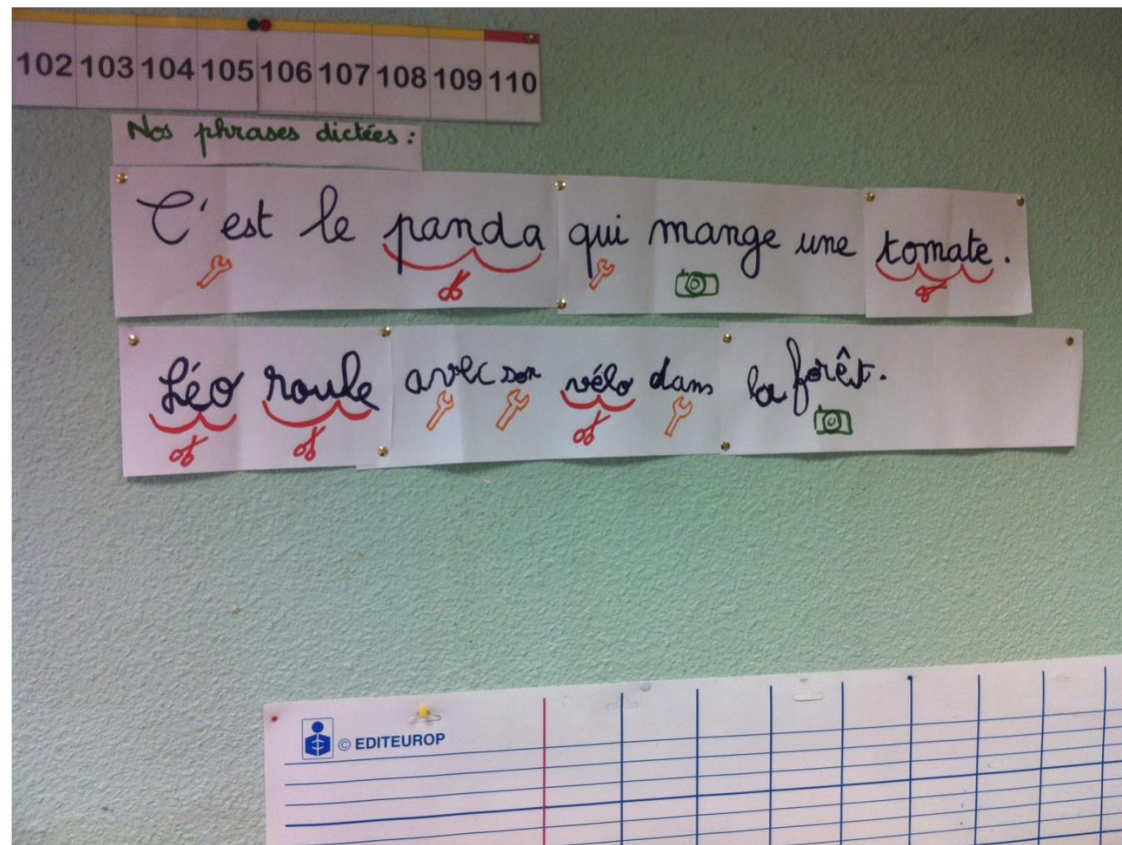 102 103 104 105 106 107 108 109 110
Nos phrases dictées :
C'est le panda qui mange une tomate.
Léo roule avec son vélo dans la forêt.
© EDITEUROP